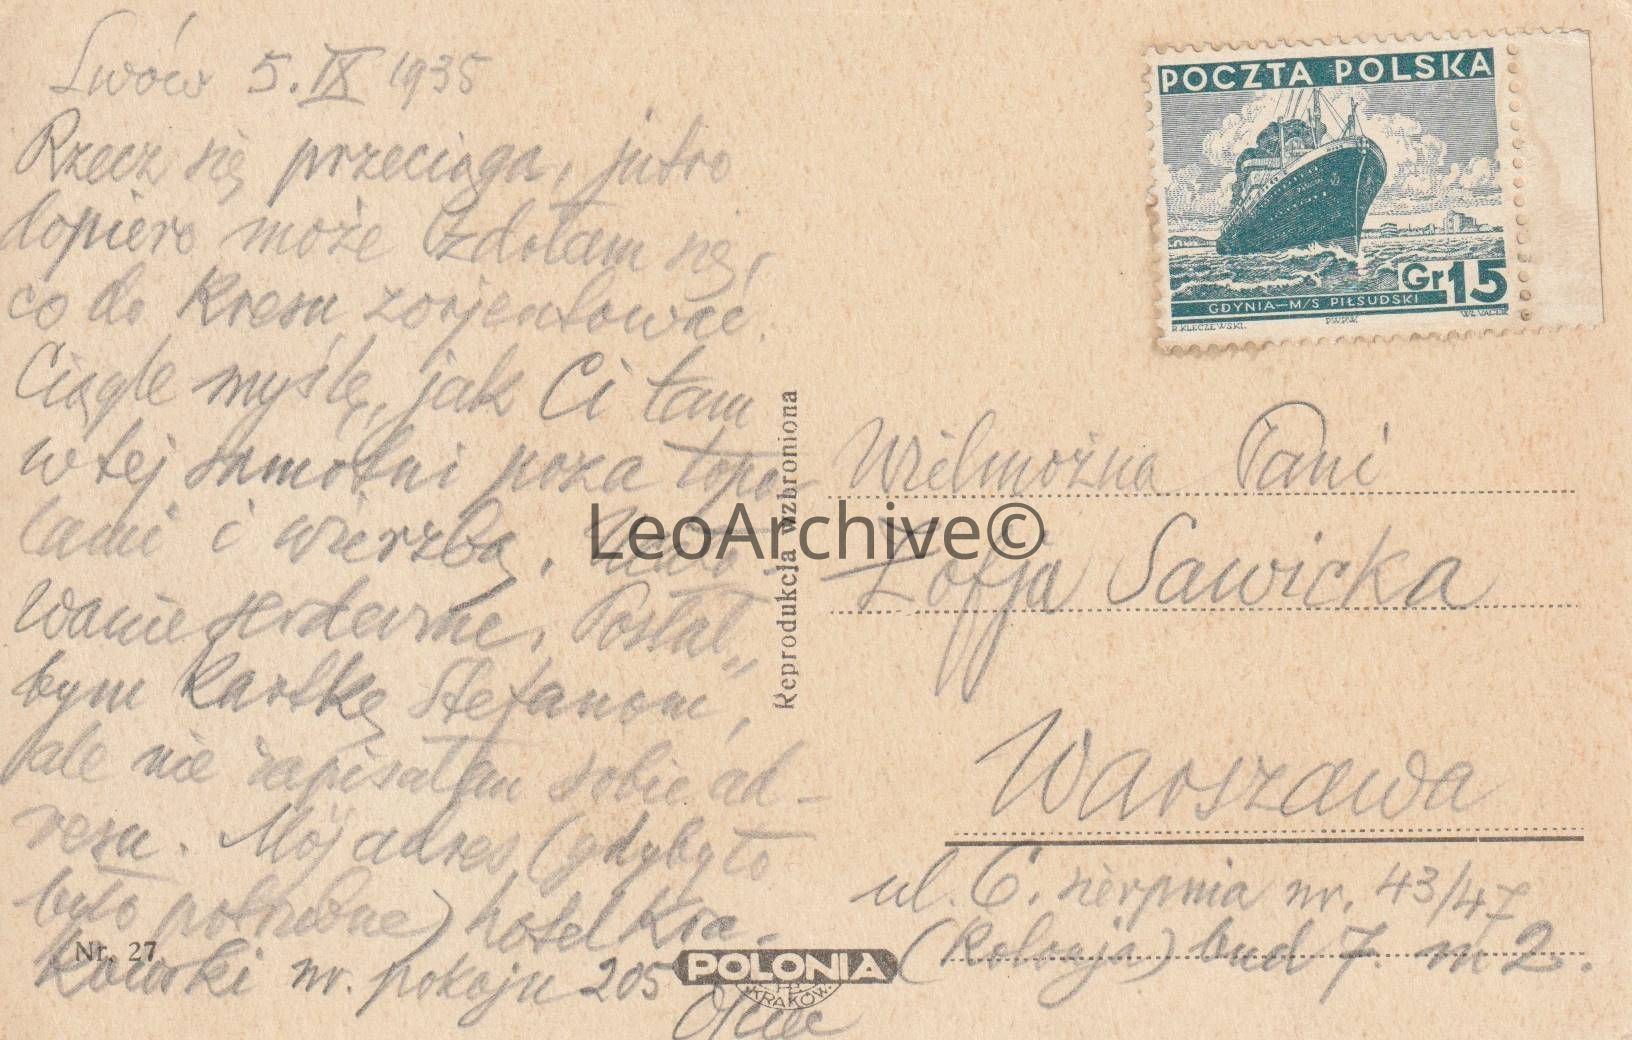 Lwów 5.IX 1935
Rzecz się przeciąga, jutro
dopiero może zdołam się,
co do kresu zorjentować.
Ciągle myślę, jak Ci tam
w tej samotni poza topo-
lami i wierzbą. Ucało-
wanie serdeczne. Posłał„
bym kartkę Stefanowi,
ale nie zapisałem sobie ad-
resu. Mój adres (gdyby to
było potrzebne) hotel Kra-
kowski nr. pokoju 205
POCZTA POLSKA
Gr 15
GDYNIA—M/S PIŁSUDSKI
R.KLECZEWSKI. P.W.P.W. W.Z.VACEK
Reprodukcja wzbroniona
LeoArchive©
Wielmożna Pani
Zofja Sawicka
Warszawa
ul. 6. sierpnia nr. 43/47
(Kolonja) bud 7. m 2.
Nr. 27
POLONIA
KRAKÓW